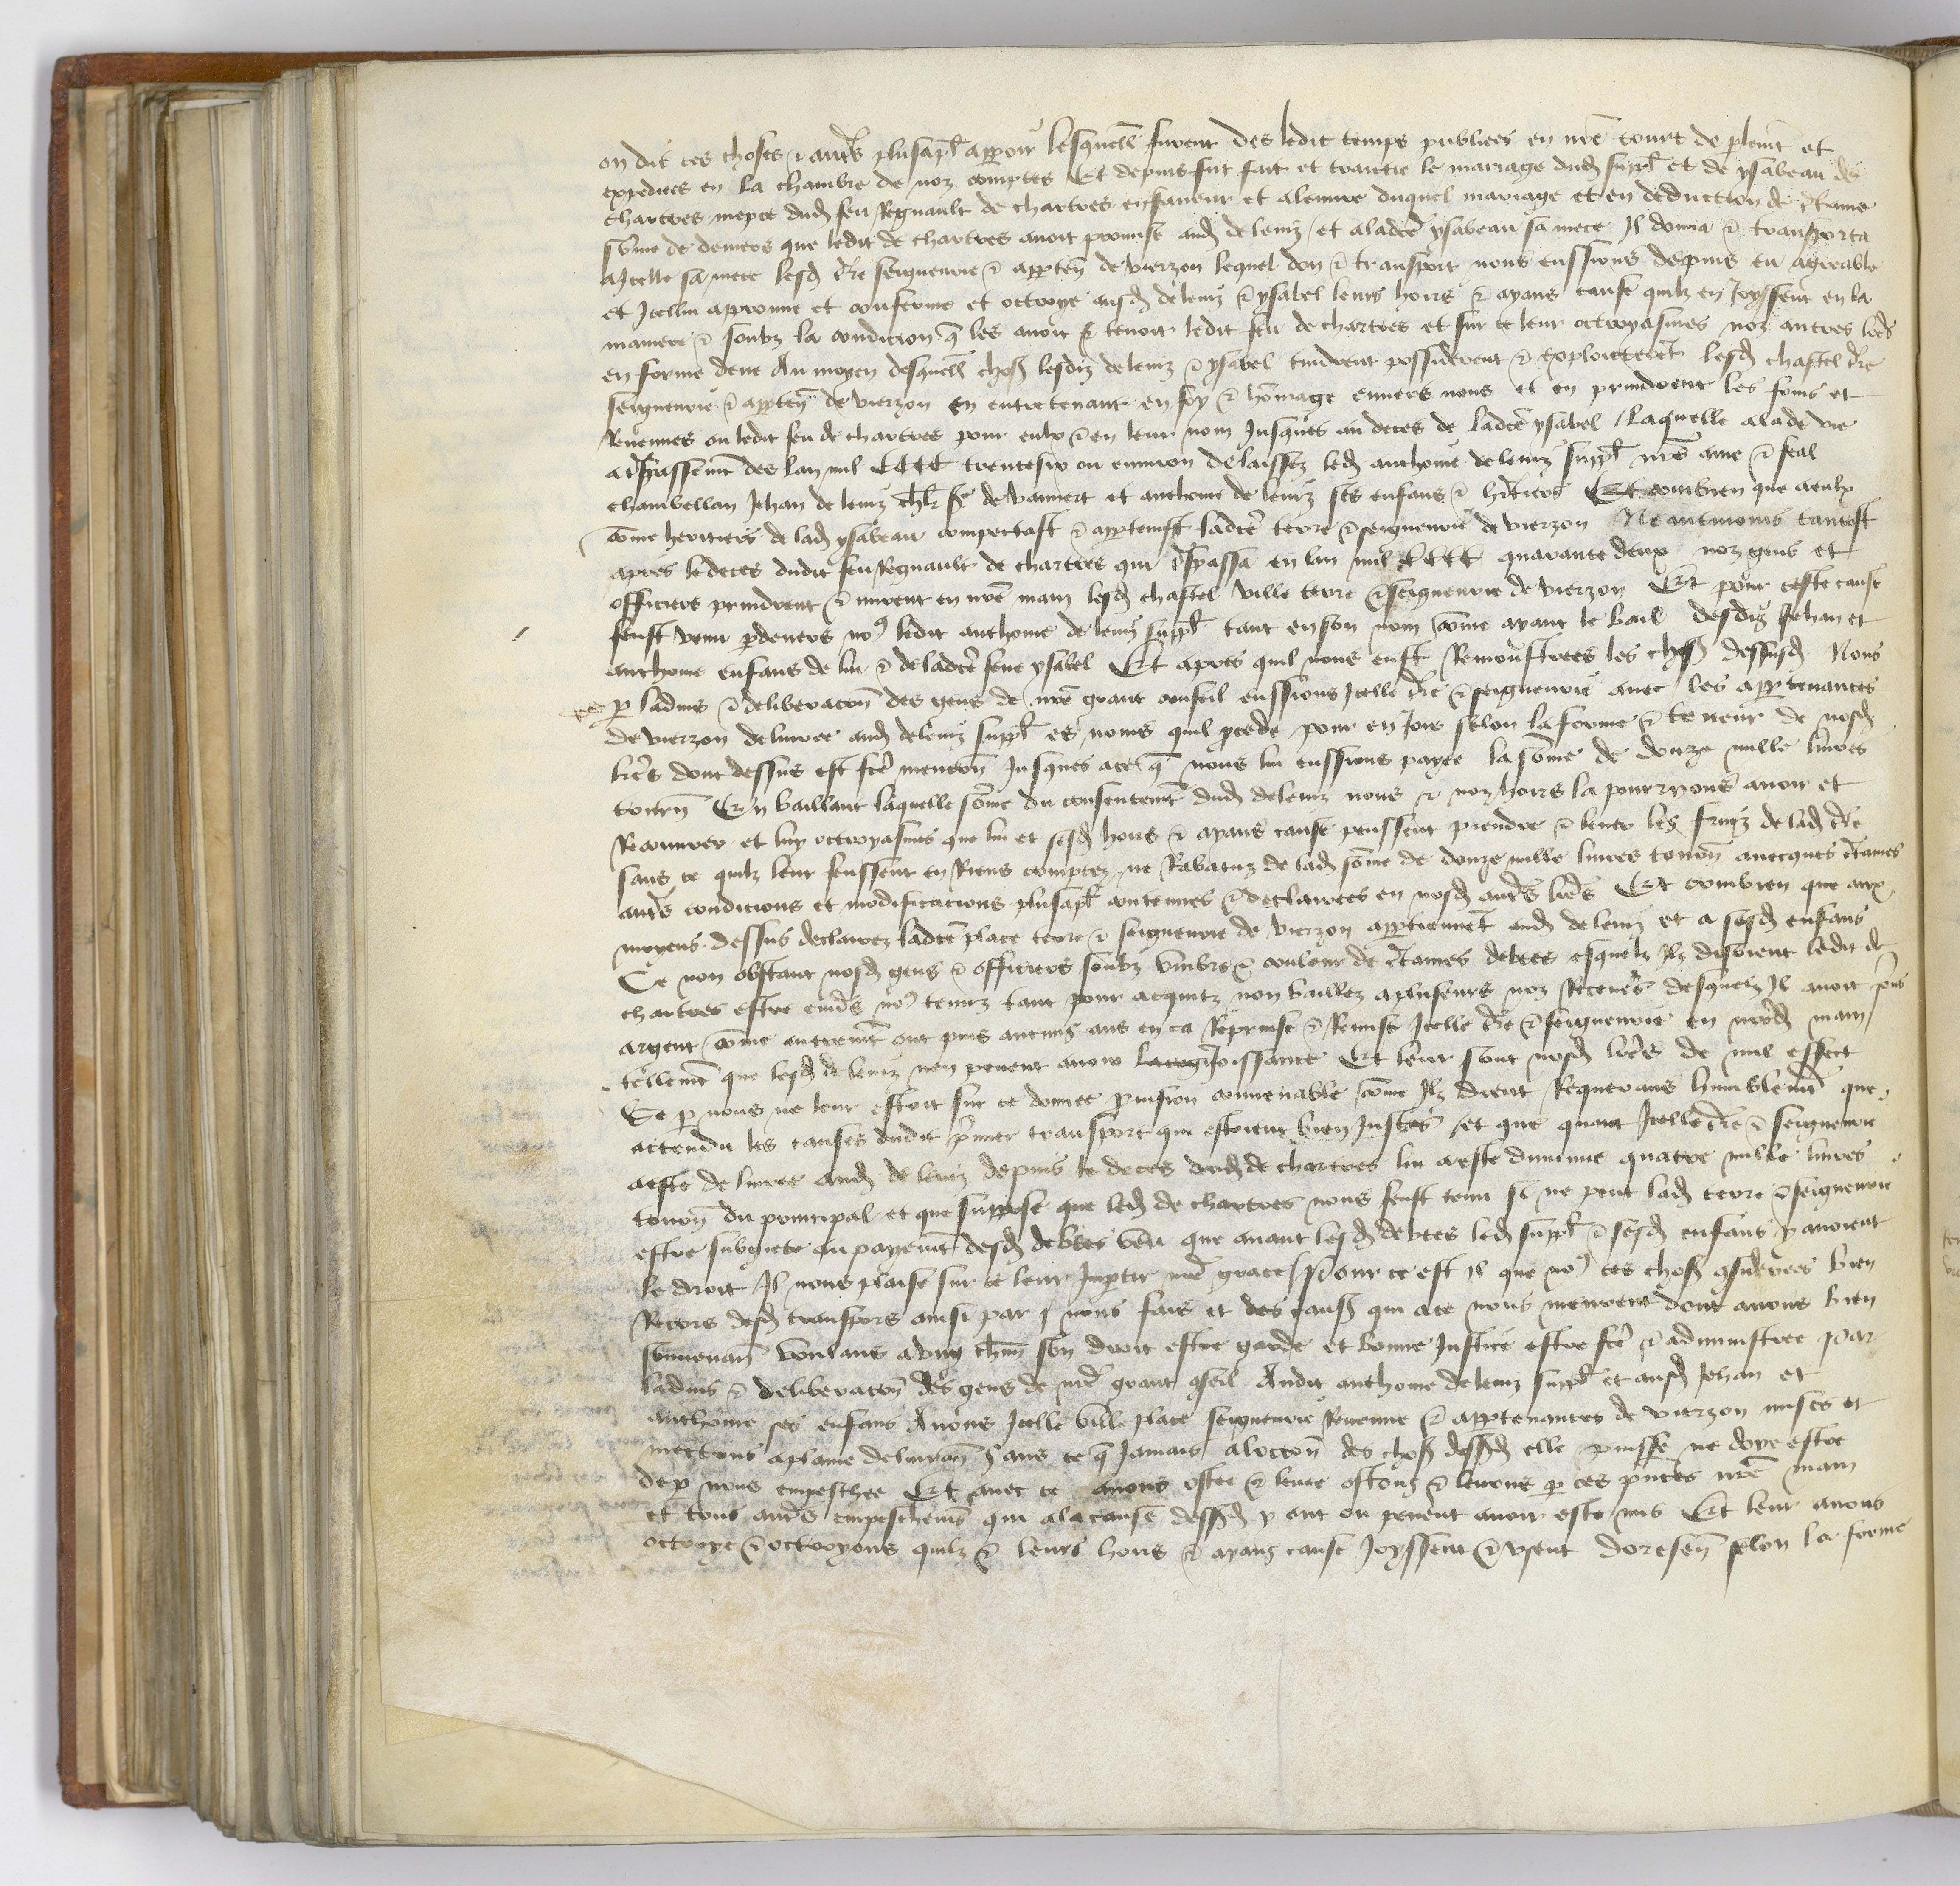 on dit ces choses & autrs plusapl apparoir lesquelles furent des ledit temps publiees en nre court de plemt et
expediees en la chambre de noz comptes Et depuis fut fait et traictie le mariage dud suppl et de ysabeau de
chartres niepce dud feu Regnault de chartres enfaveur et alemire duquel mariage et en deduction de ctaine
sōme de deniers que ledit de chartres avoit promise aud de leuiz et aladcte ysabeau sa niece Il donna & transporta
aIcelle sa niece lesd tre seigneurie & apptenn de vierzon lequel don & transport nous eussions depuis eu agreable
et Icellui approuue et conferme et octroye ausd deleuiz & ysabel leurs hoirs & ayans cause quilz en Joyssent en la
maniere & soubz la condicion q les auoit & tenoit ledit feu de chartres et sur ce leur octroyasmes noz autres lres
en forme deue Au moyen desquelles choses lesdiz deleuiz & ysabel tindrent possiderent & exploicterēt lesd chastel tre
seigneurie & apptenn de vierzon en entretenant en foy & hōmage enuers nous et en prindrent les fruis et
Reuenues ou ledit feu de chartres pour eulx & en leur nom Jusques au deces de ladcte ysabel Laquelle ala de vie
a trespassemt des lan mil CCCC trentesix ou enuiron delaissez led anthoine de leuiz suppl nre ame & feal
chambellan Jehan de leuiz chlr sr de vauuert et anthoine de leuiz ses enfans & hritiers Et combien que aeulx
cōme heritiers de lad ysabeau compectast & apptenist ladcte terre & seigneurie de vierzon Neantmoins tantost
apres ledeces dudit feu Regnault de chartres qui trespassa en lan mil CCCC quarante deux noz gens et
officiers prindrent & mirent en nre main lesd chastel ville terre & seigneurie de vierzon Et pour ceste cause
feust venu pdeuers no9 ledit anthoine de leuiz suppl tant enson nom cōme ayant le bail desdiz Jehan et
anthoine enfans de lui & deladcte feue ysabel Et apres quil nous eust Remonstrees les choses dessusd Nous
p laduis & deliberacōn des gens de nre grant conseil eussions Icelle tre & seigneurie auec les appartenances
de vierzon deliuree aud deleuiz suppl es noms quil pcede pour en Joir selon la forme & teneur de nosd
lres dont dessus est fcte mencōn Jusques ace q nous lui eussions payee la sōme de douze mille liures
tourn En baillant laquelle sōme du consentemt dud deleuiz nous & noz hoirs la pourryons auoir et
Recouurer et luy octroyasmes que lui et sesd hoirs & ayans cause peussent prendre & leuer les fruiz de lad tre
sans ce quilz leur feussent en Riens comptez ne Rabatuz de lad sōme de douze mille liures tourn auecques ctaines
autrs condicions et modificacions plusapl contenues & declarees en nosd autrs lres Et combien que aux
moyens dessus declarez ladcte place terre & seigneurie de vierzon apptiennēt aud de leuiz et a sesd enfans
Ce non obstant nosd gens & officiers soubz vmbre & couleur de ctaines debtes esquelz Ilz disoient ledit de
chartres estre enuers no9 tenuz tant pour acquitz non baillez apluseurs noz Receurs desquelz Il auoit pns
argent cōme autremt ont puis aucuns ans en ca Reprinse & Remise Icelle tre & seigneurie en nred main
tellemt que lesd de leuiz nen peuent auoir Joissance Et leur sont nosd lres de nul effect
Se p nous ne leur estoit sur ce donnee puision conuenable cōme Ilz dient Requerans humblemt que
actendu les causes dudit pmier transport qui estoient bien Justes et que quant Icelle tre & seigneurie
aeste deliuree aud de leuiz depuis le deces dud de chartres lui aeste diminue quatre mille liures
tourn du principal et que suppose que led de chartres nous feust tenu si ne peut lad terre & seigneurie
estre subgiete au payemt desd debtes veu que auant lesd debtes led suppl & sesd enfans y auoient
le droit Il nous plaise sur ce leur Impartir nre grace Pour ce est Il que no9 ces choses csiderees bien
Recors desd transpors ainsi par nous fais et des causes qui ace nous meurent dont auons bien
souuenan Voulans a vng chun son droit estre garde et bonne Justice estre fcte & administree Par
laduis & deliberacōn des gens de nre grant cseil Audit anthoine deleuiz suppl et ausd Jehan et
anthoine ses enfans Auons Icelle ville place seigneurie Reuenue & apptenances de vierzon mises et
mectons aplaine deliurān Sans ce q Jamais aloccōn des choses dessusd elle puisse ne doye estre
dep nous empeschee Et auec ce auons ostee & leuee ostons & leuons p ces pntes nre main
et tous autrs empeschemēs qui alacause dessusd y ont ou peuent auoir este mis Et leur auons
octroye & octroyons quilz & leurs hoirs & ayans cause Joyssent & vsent doresen selon la forme